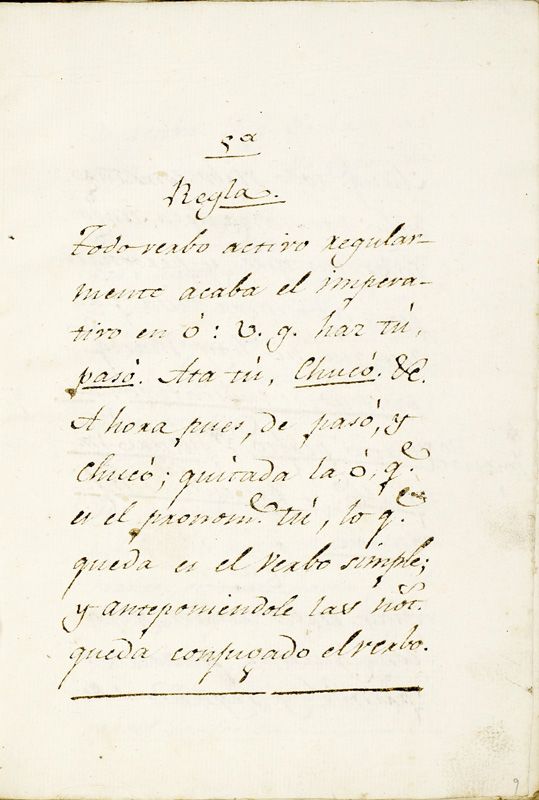 5ª
Regla.
Todo verbo activo regular-
mente acaba el impera-
tivo en ó: v. g. haz tú,
pasó. Ata tú, Chucó. &c.
Ahora pues, de pasó, y
Chucó; quitada la ó, q.e
es el pronom.e tú, lo q.e
queda es el verbo simple;
y anteponiendole las not.
queda conjugado el verbo.
9